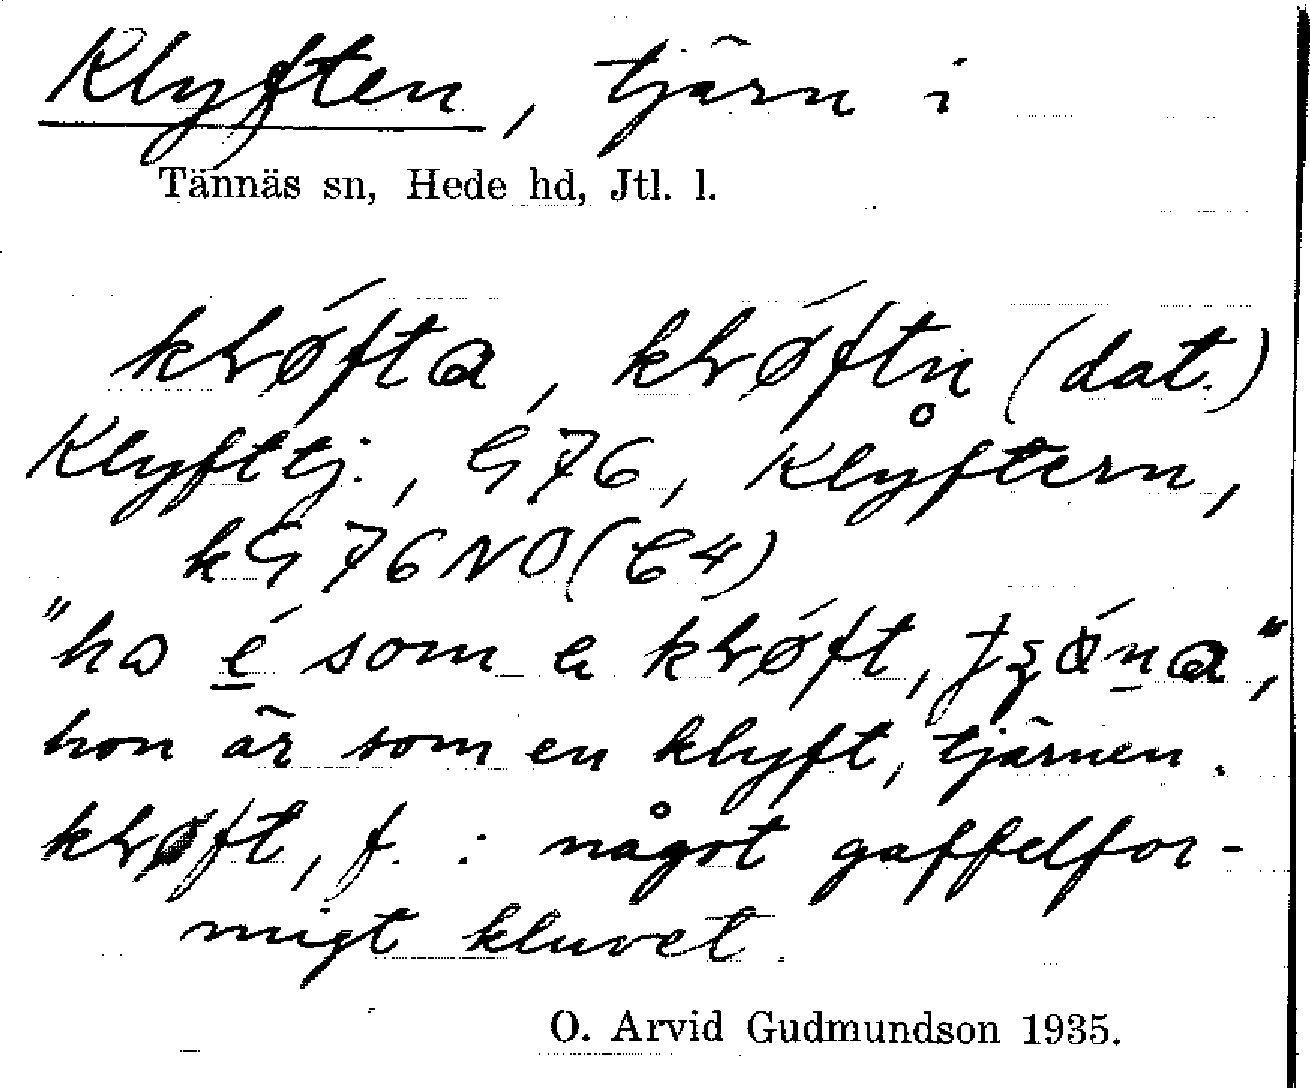 Klyften, tjärn i
Tännäs sn, Hede hd, Jtl. l.
(dat.)
Klyfttj., G76, Klyftern,
kG76NO(C4)
"ha é som
hon är som en klyft, tjärnen.
f. : något gaffelfor-
migt kluvet.
O. Arvid Gudmundson 1935.